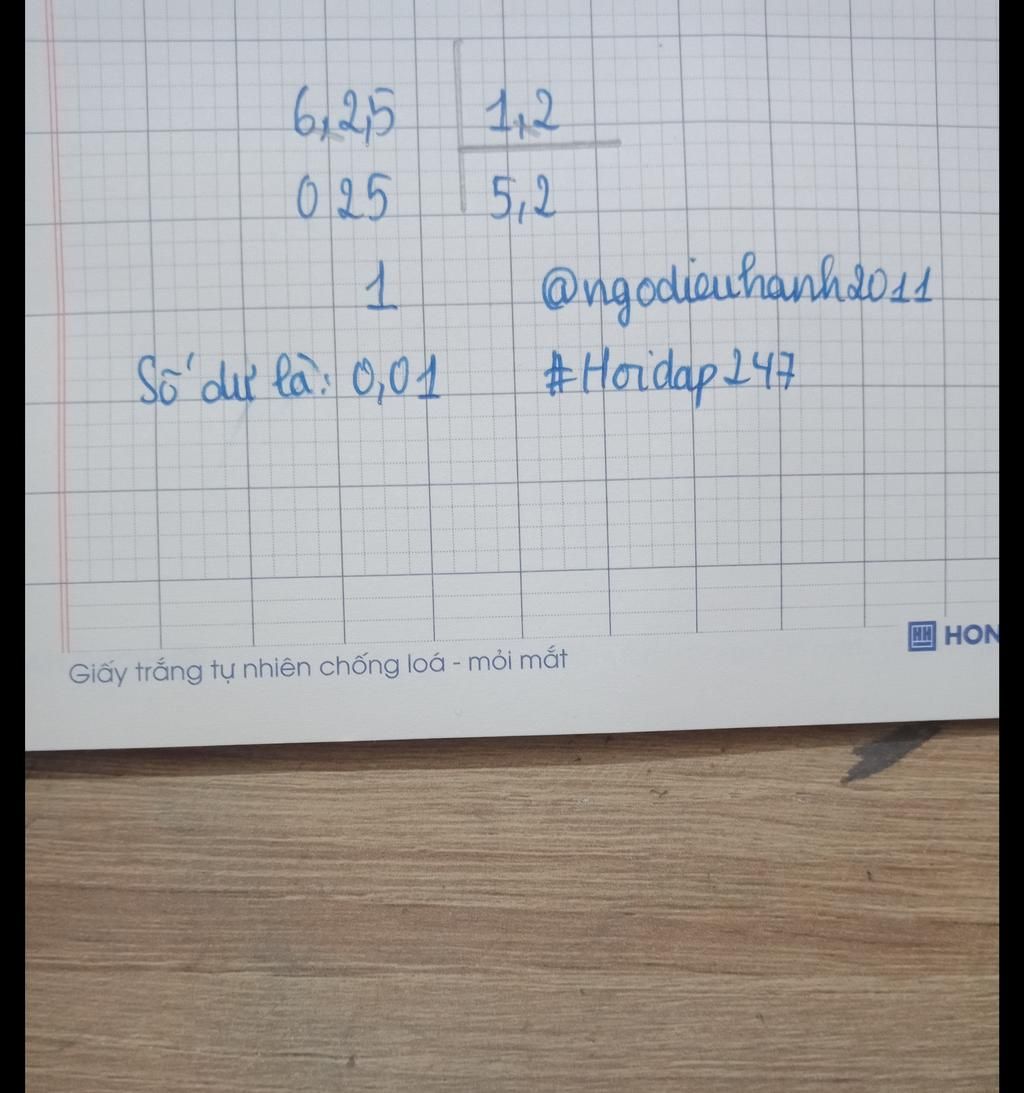 6,2,5 1,2
0 25 5,2
1 @ngodieuhanh2011
Số dư là: 0,01 #Hoidap247
HH HON
Giấy trắng tự nhiên chống loá - mỏi mắt